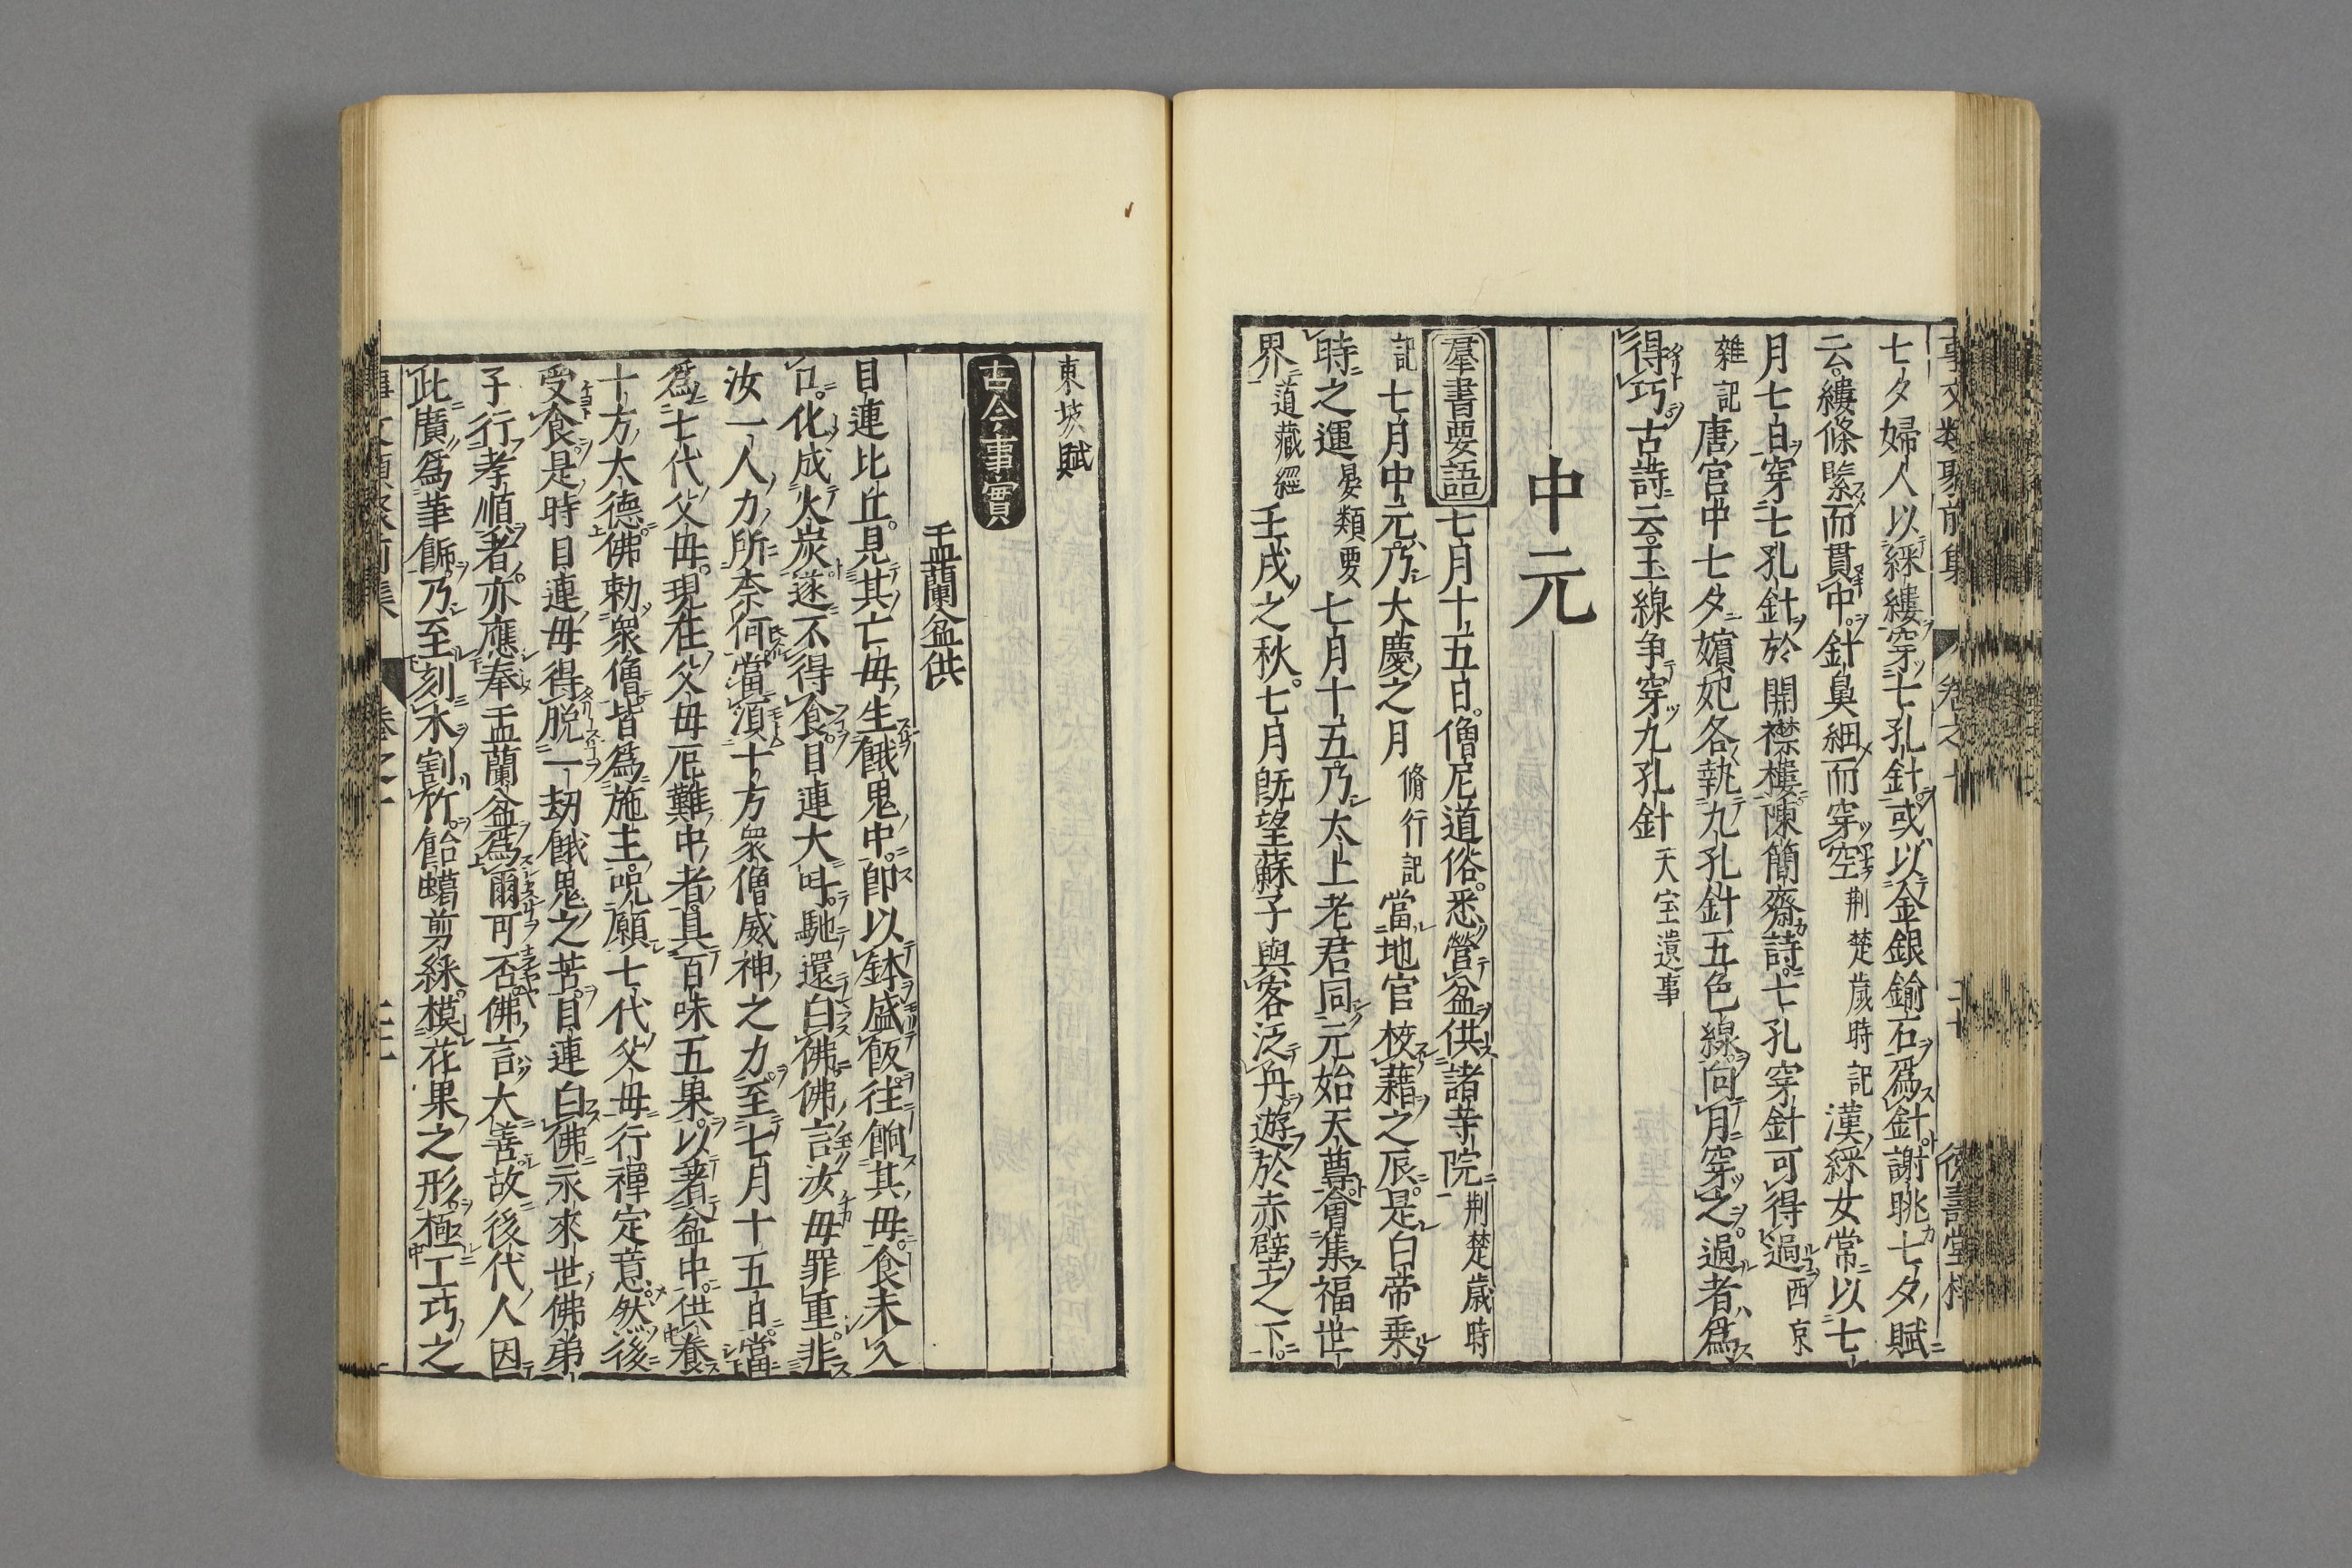 七夕婦人以綵縷穿七孔針或以金銀鍮石爲針謝眺七夕賦
云縷條緊而貫中針鼻細而穿空荆楚歲時記漢綵女常以七
月七日穿七孔針於開襟樓陳簡齋詩七孔穿針可得過西京
雜記唐宮中七夕嬪妃各執九孔針五色線向月穿之過者爲
得巧古詩云玉線争穿九孔針天宝遺事
中元
羣書要語七月十五日僧尼道俗悉營盆供諸寺院荆楚歲時
記七月中元乃大慶之月脩行記當地官校藉之辰是白帝乗
時之運晏類要七月十五乃太上老君同元始天尊會集福世
界道藏經壬戌之秋七月旣望蘇子與客泛舟遊於赤壁之下
東坡賦
古今事實
盂蘭盆供
目連比丘見其亡母生餓鬼中卽以鉢盛飯往餉其母食未入
口化成火炭遂不得食目連大呌馳還白佛佛言汝母罪重非
汝一人力所奈何當湏十方衆僧威神之力至七月十五日當
爲七代父母現在父母厄難中者具百味五果以著盆中供養
十方大德佛勅衆僧皆爲施主呪願七代父母行禪定意然後
受食是時目連母得脱一劫餓鬼之苦目連白佛未來世佛弟
子行孝順者亦應奉盂蘭盆爲爾可否佛言大善故後代人因
此廣爲華飾乃至刻木割竹飴蠟剪綵模花果之形極工巧之